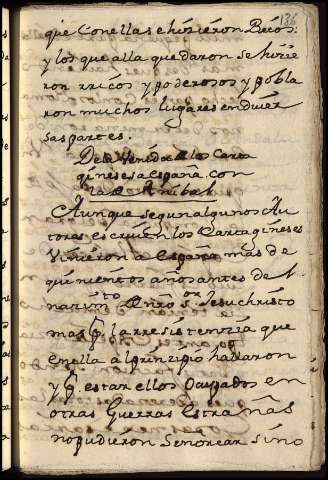 136
que Con ellas e hisieron Reios:
y los que alla quedaron se hisie
ron rricos y poderosos y pobla
ron muchos lugares en diuer
sas partes.
De la Venida de los Carta
gineses a España. con
Anibal
Aunque segun algunos Au
tores escriuen los Cartagineses
Vinieron a España mas de
quinientos años antes de
sto or
narim Cristo
mas q la rresistenzia que
en ella al prinzipio hallaron
y q. estar ellos Ocupados en
otras Guerras Estrañas
no pudieron Senorear sino